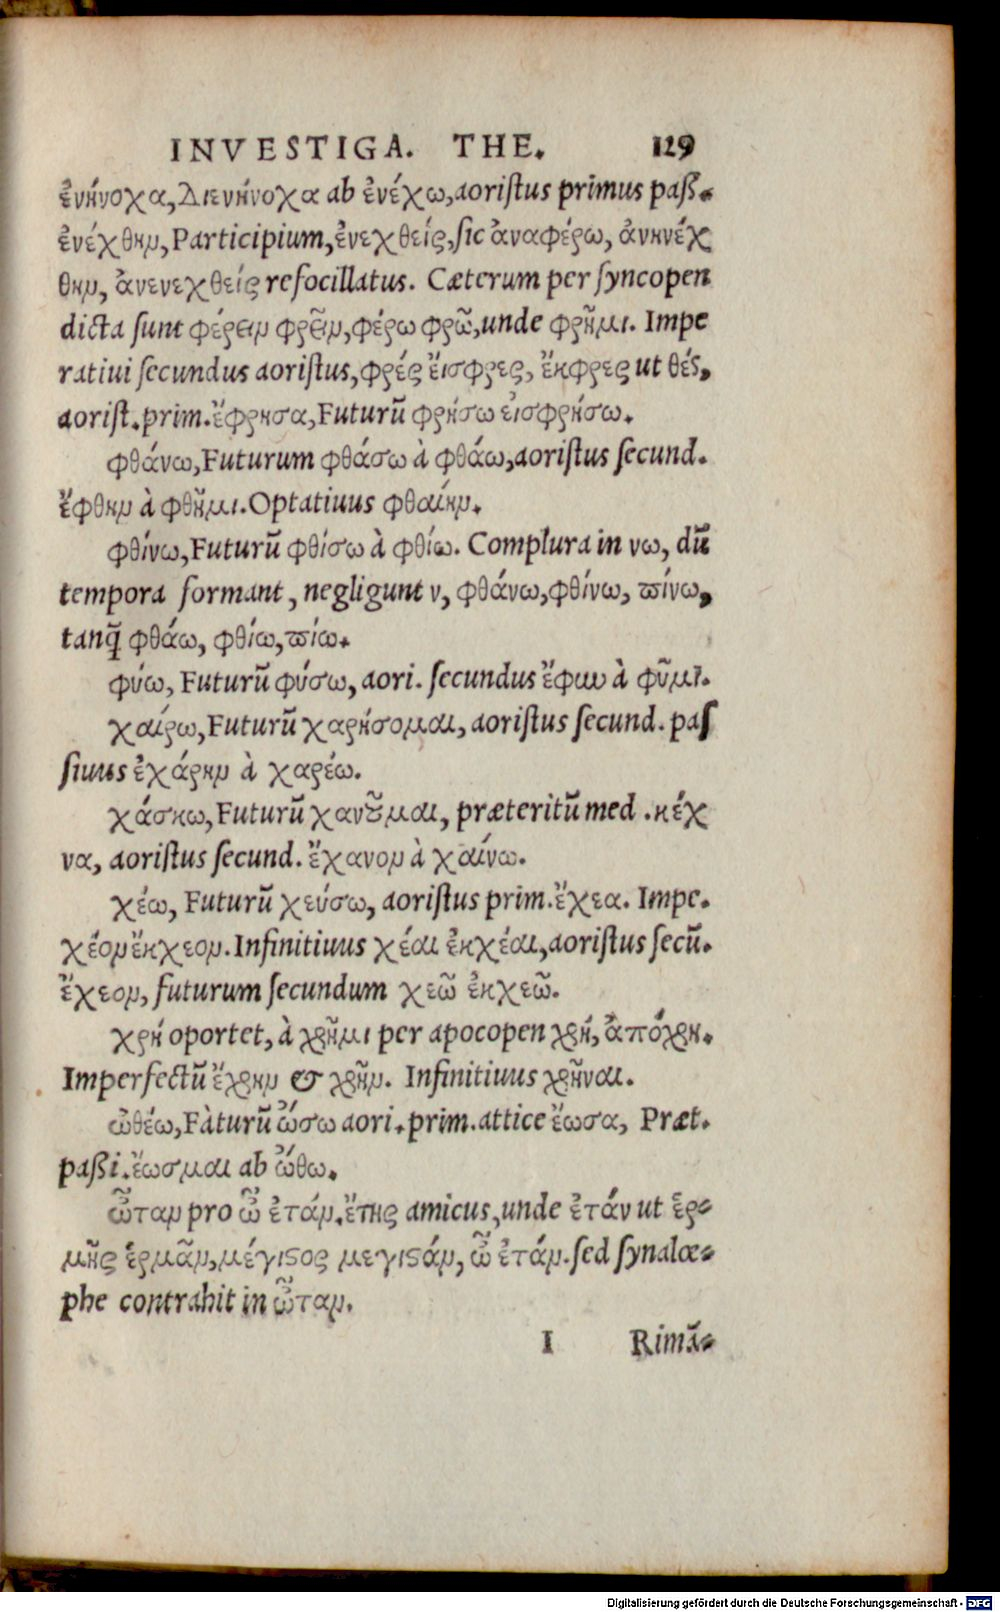 INVESTIGA. THE. 129
ἐνήνοχα, Διενήνοχα ab ἐνέχω, aoristus primus paß.
ἐνέχθην, Participium, ἐνεχθείς, sic ἀναφέρω, ἀνηνέχ
θην, ἀνενεχθείς refocillatus. Cæterum per syncopen
dicta sunt φέρειν φρεῖν, φέρω φρῶ, unde φρῆμι. Impe
rativi secundus aoristus, φρές ἔισφρες, ἔκφρες ut θές,
aorist. prim. ἔφρησα, Futurũ φρήσω εἰσφρήσω.
φθάνω, Futurum φθάσω à φθάω, aoristus secund.
ἔφθην à φθῆμι. Optatiuus φθαίην.
φθίνω, Futurũ φθίσω à φθίω. Complura in νω, dũ
tempora formant, negligunt ν, φθάνω, φθίνω, πίνω,
tanq̃ φθάω, φθίω, πίω.
φύω, Futurũ φύσω, aori. secundus ἔφυν à φῦμι.
χαίρω, Futurũ χαρήσομαι, aoristus secund. pas
siuus ἐχάρην à χαρέω.
χάσκω, Futurũ χανοῦμαι, præteritũ med. κέχ
να, aoristus secund. ἔχανον à χαίνω.
χέω, Futurũ χεύσω, aoristus prim. ἔχεα. Impe.
χέον ἔκχεον. Infinitiuus χέαι ἐκχέαι, aoristus secũ.
ἔχεον, futurum secundum χεῶ ἐκχεῶ.
χρή oportet, à χρῆμι per apocopen χρή, ἀπόχρη.
Imperfectũ ἔχρην & χρῆν. Infinitiuus χρῆναι.
ὠθέω, Fàturũ ὤσω aori. prim. attice ἔωσα, Præt.
paßi. ἔωσμαι ab ὤθω.
ὦταν pro ὦ ἐτάν. ἔτης amicus, unde ἐτάν ut ἑρ-
μῆς ἑρμᾶν, μέγιστος μεγιστάν, ὦ ἐτάν. sed synalœ-
phe contrahit in ὦταν.
I Rimã-
Digitalisierung gefördert durch die Deutsche Forschungsgemeinschaft - DFG